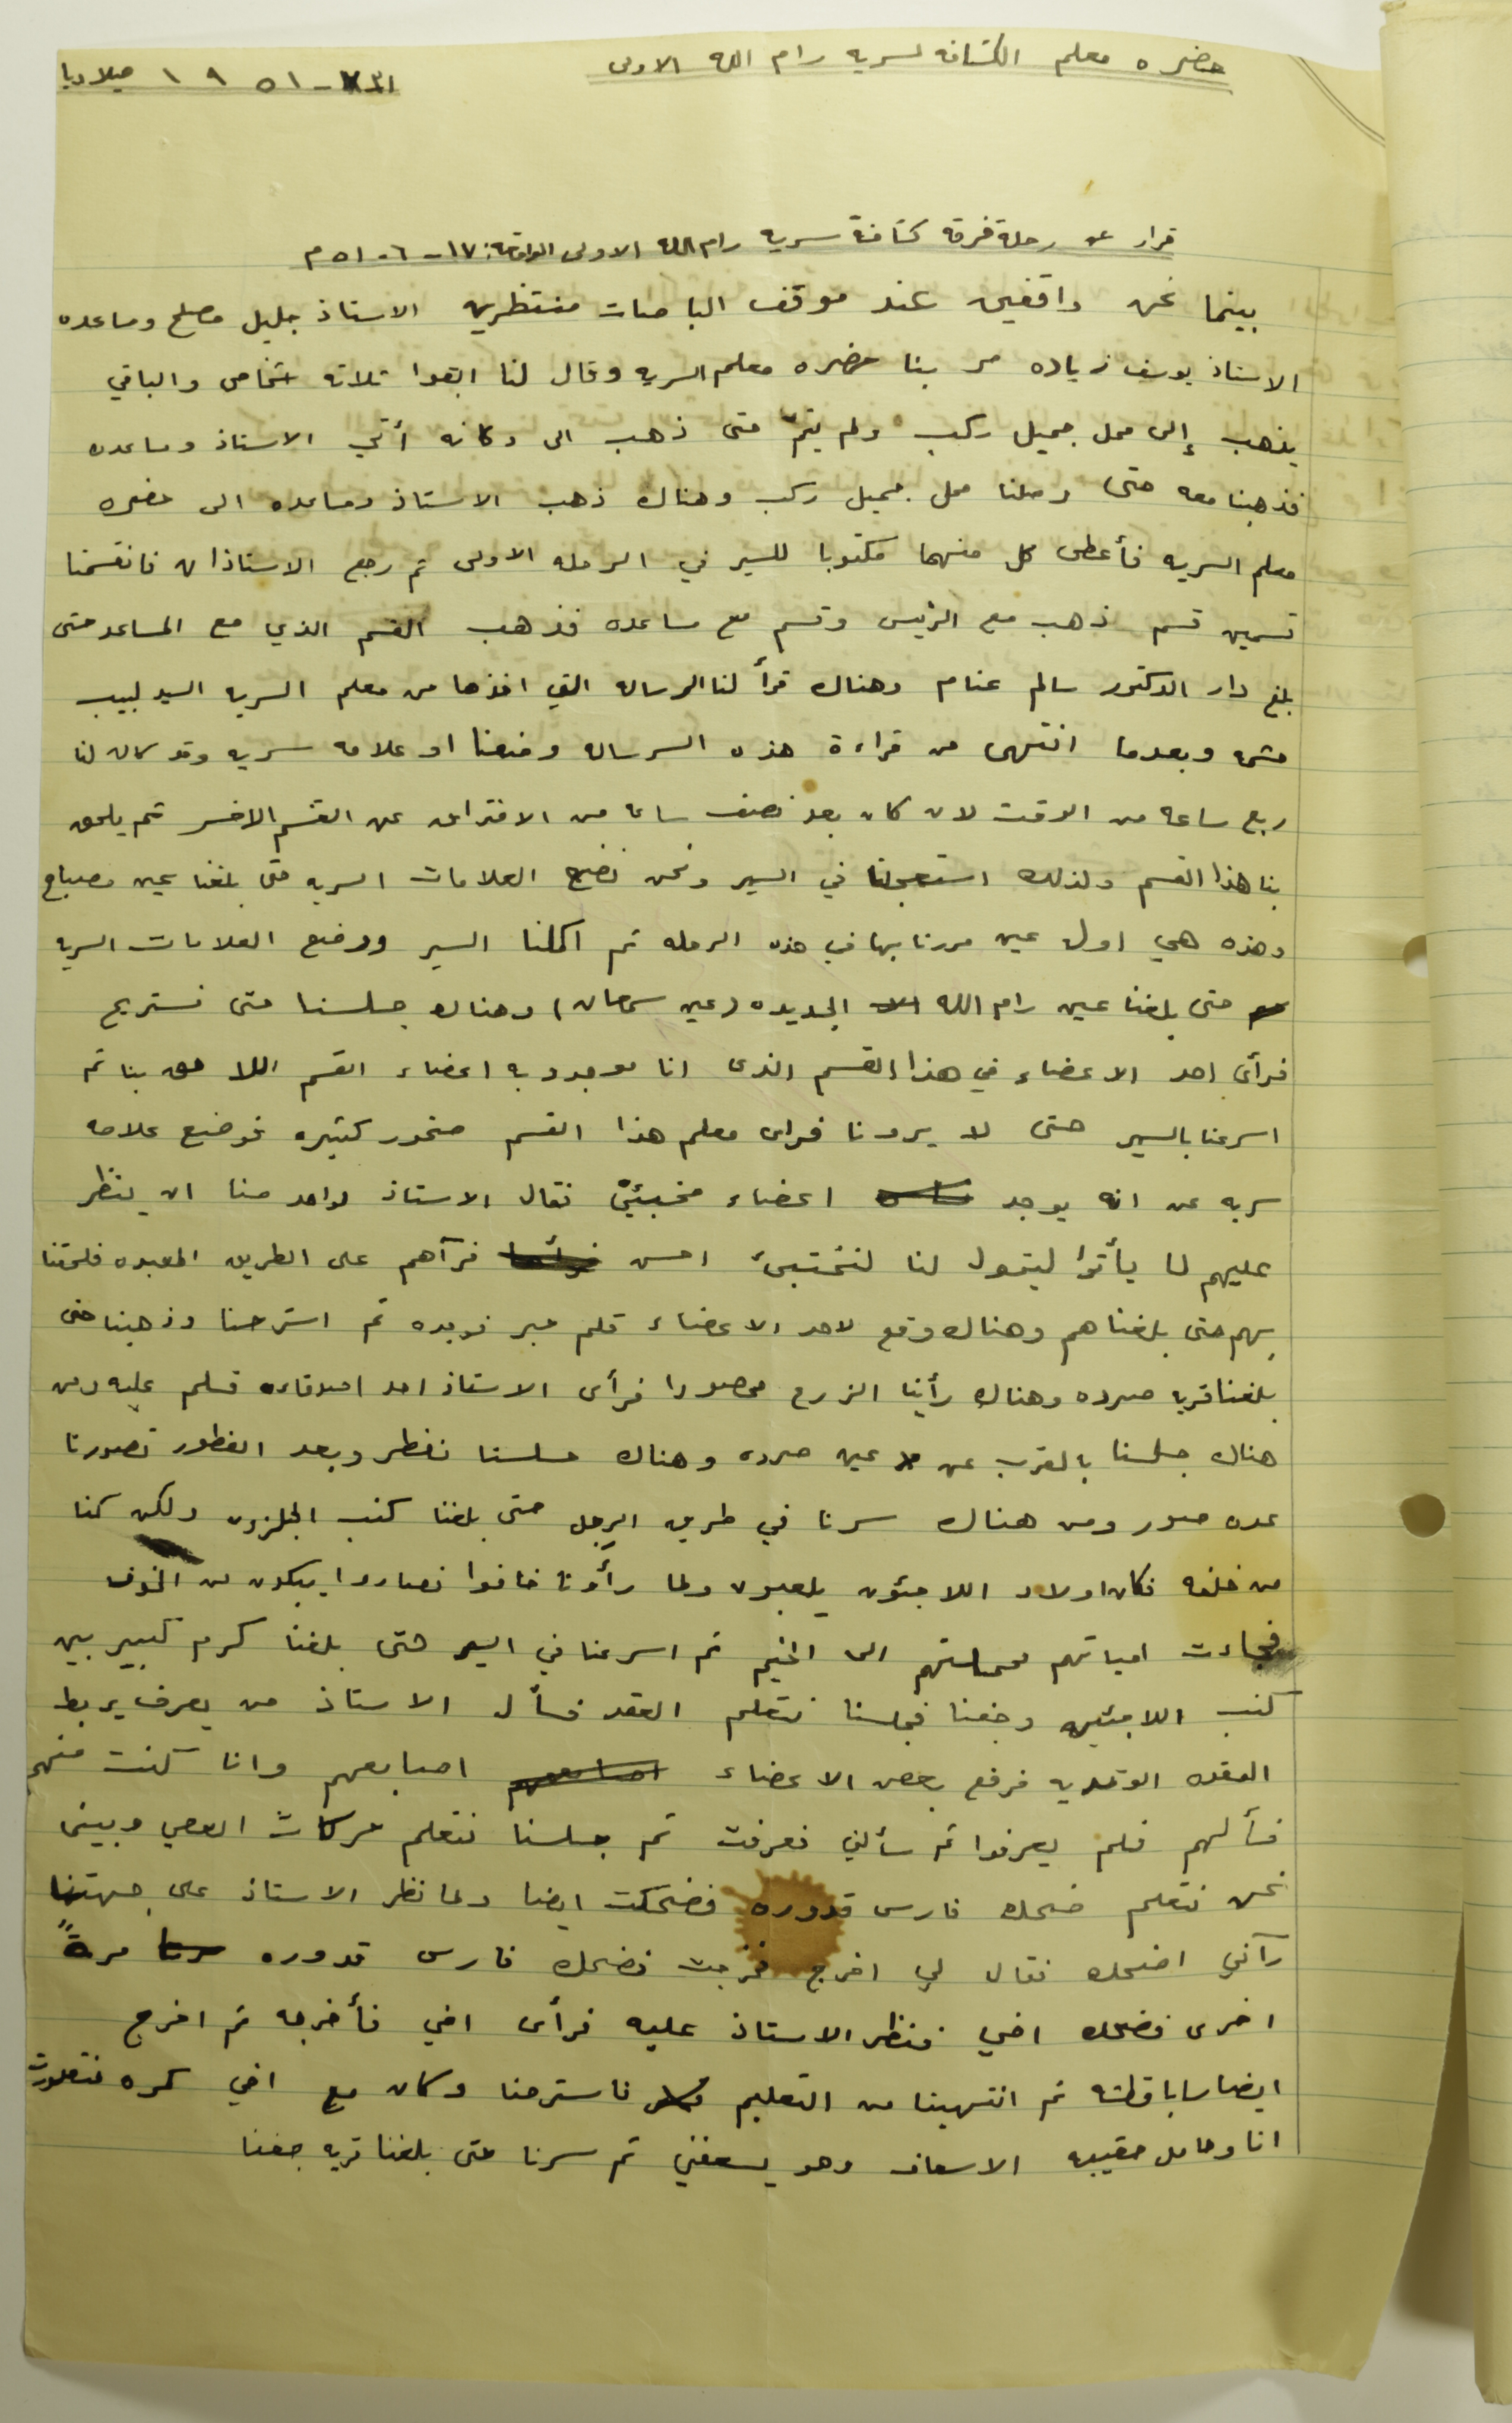 حضره معلم الكشافه لسريه رام الله الاولى
١٩٥١ ميلاديا
قرار عن رحلة فرقه كشافة سريه رام الله الاولى الواقعة: ١٧-٦-٥١ م
بينما نحن واقفين عند موقف الباصات منتظرين الاستاذ جليل مصلح ومساعده
الاستاذ يوسف زياده مر بنا حضره معلم السريه وقال لنا ابقوا ثلاثه اشخاص والباقي
يذهب إلى محل جميل ركب ولم يتمّ حتى ذهب الى دكانه أتي الاستاذ ومساعده
فذهبنا معه حتى وصلنا محل جميل ركب وهناك ذهب الاستاذ ومساعده الى حضره
معلم السريه فأعطى كل منهما مكتوبا للسير في الرحله الاولى ثم رجع الاستاذان فانقسمنا
قسمين قسم ذهب مع الرئيس وقسم مع مساعده فذهب القسم الذي مع المساعد حتى
بلغ دار الدكتور سالم غنام وهناك قرأ لنا الرساله التي اخذها من معلم السريه السيد لبيب
حشمه وبعدما انتهى من قراءة هذه الرساله وضعنا او علامه سريه وقد كان لنا
ربع ساعه من الوقت لان كان بعد نصف ساعه من الافتراق عن القسم الاخر ثم يلحق
بنا هذا القسم ولذلك استعجلنا في السير ونحن نضع العلامات السريه حتى بلغنا عين مصباح
وهذه هي اول عين مررنا بها في هذه الرحله ثم اكملنا السير ووضع العلامات السريه
حتى بلغنا عين رام الله الجديده (عين سمعان) وهناك جلسنا حتى نستريح
فرأى احد الاعضاء في هذا القسم الذى انا موجود به اعضاء القسم اللاحق بنا ثم
اسرعنا بالسير حتى لا يرونا فراى معلم هذا القسم صخور كثيره فوضع علامه
سريه عن انه يوجد اعضاء مخبئين فقال الاستاذ لواحد منا ان ينظر
عليهم لما يأتوا ليقول لنا لنختبئ احسن فرآهم على الطريق المعبده فلحقنا
بهم حتى بلغناهم وهناك وقع لاحد الاعضاء قلم حبر فوجده ثم استرحنا وذهبنا حتى
بلغنا قريه صرده وهناك رأينا الزرع محصودا فرأى الاستاذ احد اصدقاءه فسلم عليه ومن
هناك جلسنا بالقرب عن عين صرده وهناك جلسنا نفطر وبعد الفطور تصورنا
عده صور ومن هناك سرنا في طريق الرجل حتى بلغنا كنب الجلزون ولكن كنا
من خلفه فكان اولاد اللاجئون يلعبون ولما رأونا خافوا فصاروا يبكون من الخوف
فجاءت امهاتهم فحملتهم الى الخيم ثم اسرعنا في السير حتى بلغنا كرم كبير بين
كنب اللاجئين وجفنا فجلسنا نتعلم العقد فسأل الاستاذ من يعرف يربط
العقده الوتديه فرفع بعض الاعضاء اصابعهم وانا كنت منهم
فسألهم فلم يعرفوا ثم سألني فعرفت ثم جلسنا نتعلم حركات العصي وبينما
نحن نتعلم ضحك فارس قدوره فضحكت ايضا ولما نظر الاستاذ على جهتنا
رآني اضحك فقال لي اخرج فخرجت فضحك فارس قدوره مرةً
اخرى فضحك اخي فنظر الاستاذ عليه فرأى اخي فأخرجه ثم اخرج
ايضا سابا قطشه ثم انتهينا من التعليم فاسترحنا وكان مع اخي كره فتعورت
انا وحامل حقيبه الاسعاف وهو يسعفني ثم سرنا حتى بلغنا قريه جفنا